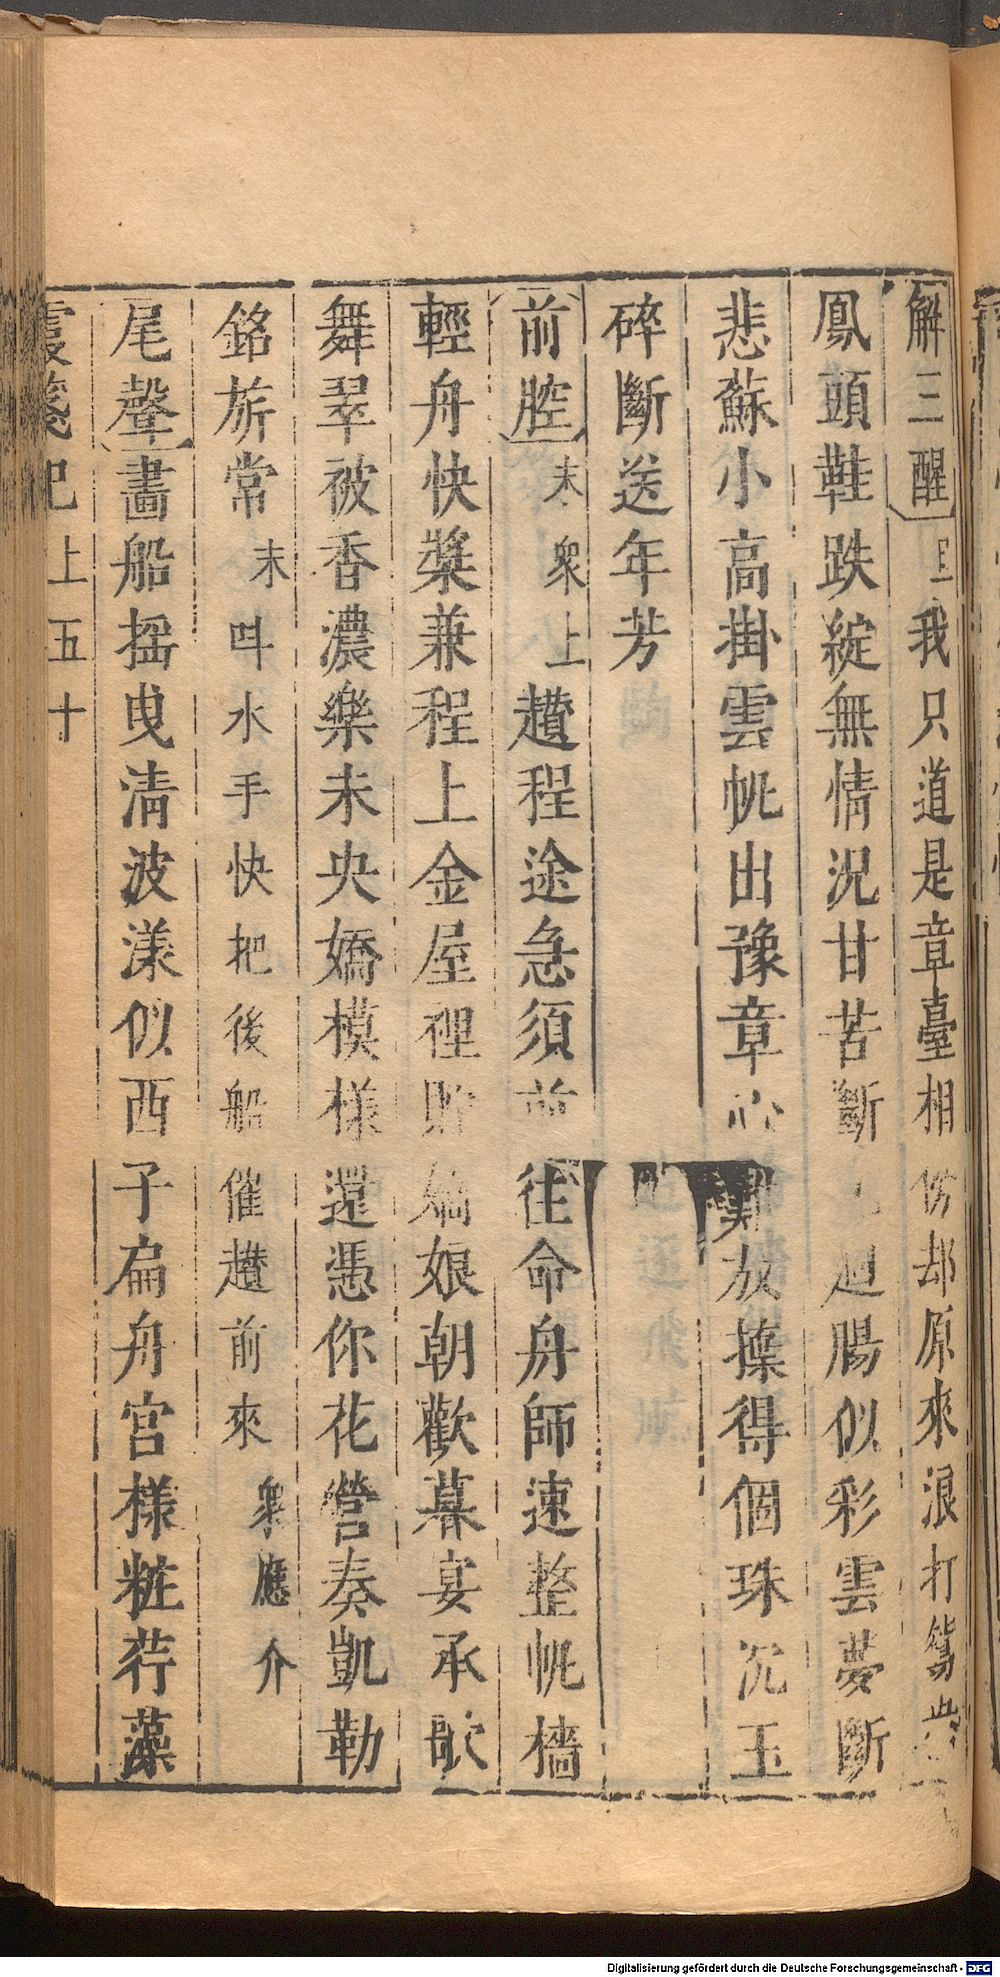 解三酲旦我只道是章臺相傍却原來浪打鴛
鳳頭鞋跌綻無情況甘苦斷迴腸似彩雲夢斷
悲蘇小高掛雲帆出豫章心難放操得個珠沉玉
碎斷送年芳
前腔末衆上趲程途急須前往命舟師速整帆檣
輕舟快槳兼程上金屋裡貯嬌娘朝歡暮宴承歌
舞翠被香濃樂未央嬌模様還憑你花營奏凱勒
銘旂常末叫水手快把後船催趲前來衆應介
尾聲畵船揺曳清波漾似西子扁舟宫様粧荇藻
霞箋记上五十
Digitalisierung gefördert durch die Deutsche Forschungsgemeinschaft - DFG